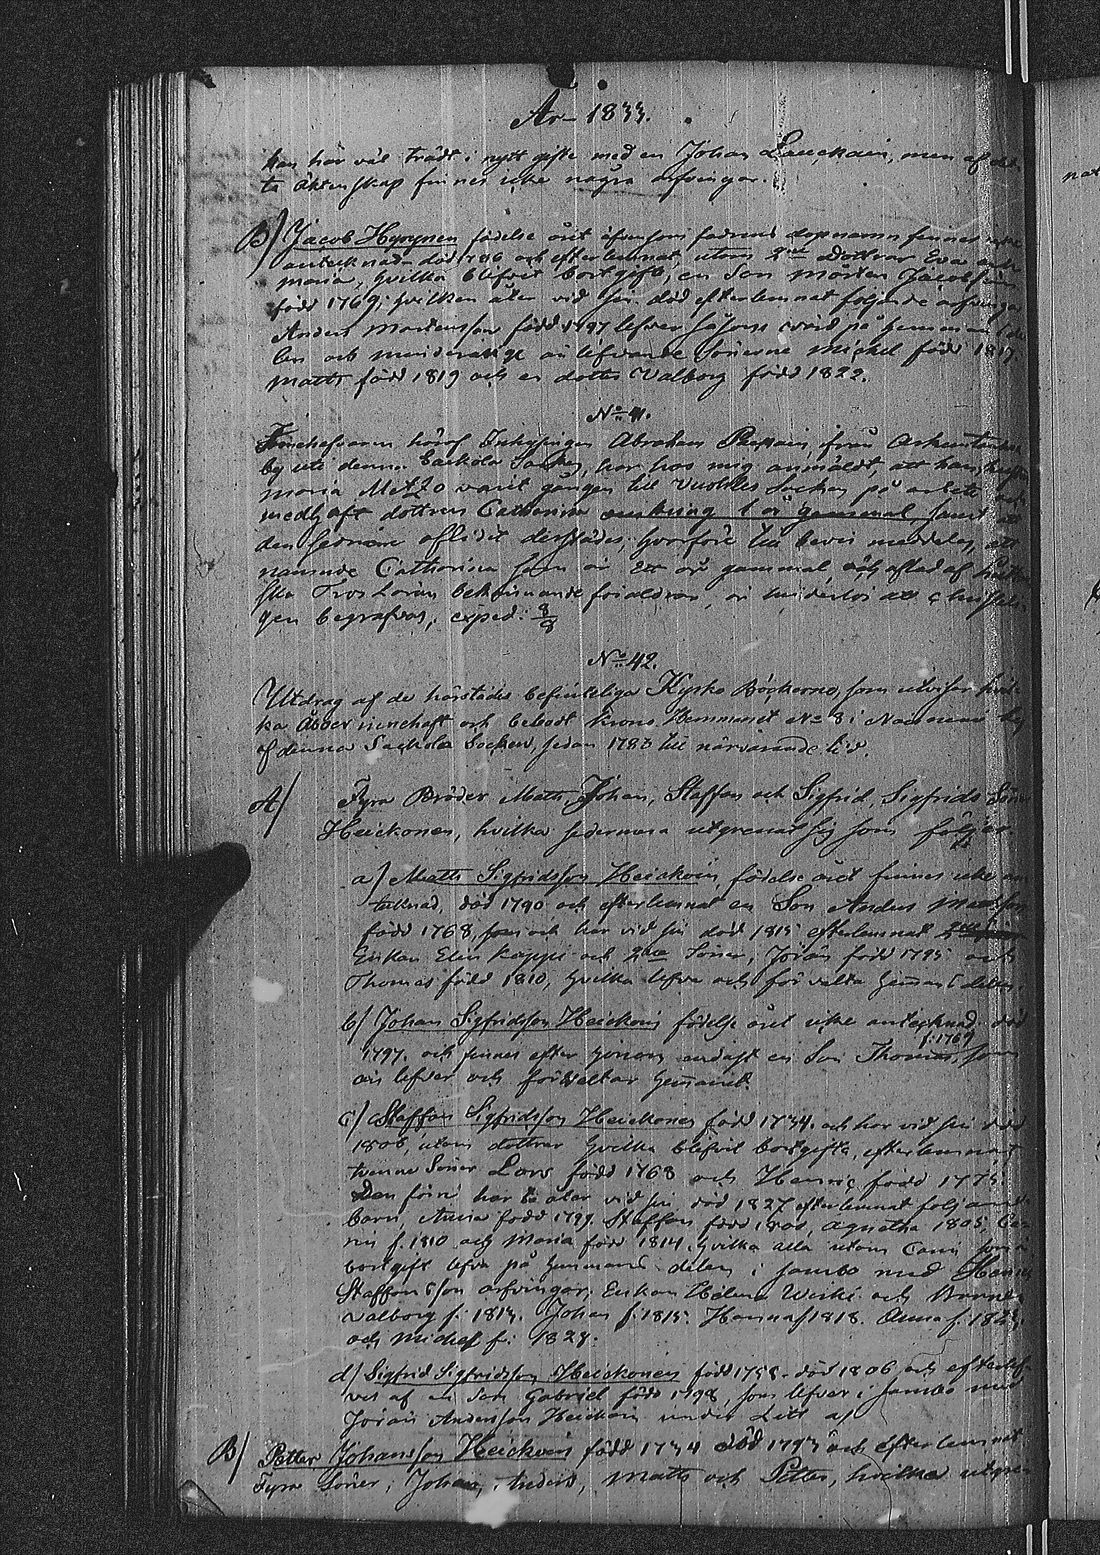 År 1833.
han har väl trädt i nytt gifte med en Johan Lauckain, men af det
ta äktenskap finnes icke några arfvingar.
B) Jacob Hyrynen födelse året äfvensom fadrens dopnamn finnes icke
antecknad död 1786 och efterlemnat utom 2ne döttrar Eva och
Maria, hvilka blifvit bortgifte, en Son Mårten Jacobsson
född 1769, hvilken åter vid sin död efterlemnat följande arfvingar
Anders Mårtensson född 1797 lefver på hemman
len och ännu lefvande Sönerne Michel född 1817
Matts född 1819 och en dotter Valborg född 1822.
No 41.
Inhysingen Abraham från
by uti denna Sackola Socken, har hos mig anmäldt att hans hustru
Maria Metzo varit gången till Socken på arbete och
medhaft dottren Catharina omkring 1 år gammal, samt att
den sednare aflidit derstädes, hvarföre till bevis meddelas, att
nämnde Catharina som är Ett år gammal och aflad af
ska Tros Läran bekännande föräldrar, är hinderlös att christeli-
gen begrafvas, exped. 8/8
No 42.
Utdrag af de härstädes befinteliga Kyrko Böckerne, som utvisar hvil-
ka åboer innehaft och bebodt Krono Hemmanet No 8 i by
af denna Sackola Socken, sedan 1783 till närvarande tid.
A) Fyra Bröder Matts, Johan, Staffan och Sigfrid, Sigfrids Söner
Heickonen, hvilka sedermera utgrenat sig som följer
a) Matts Sigfridsson Heickoin, födelse året finnes icke an-
tecknad, död 1790 och efterlemnat en Son Anders Mattsson
född 1768, som och har vid sin död 1815 efterlemnat
Enkan Elin Käppi och 2ne Söner, Jöran född 1795 och
Thomas född 1810, hvilka lefva och förvalta hemmans delen.
b) Johan Sigfridsson Heickoin födelse året icke antecknad, död
1797. och finnes efter honom endast en Son Thomas, f: 1769 som
än lefver och förvaltar hemmanet.
c) Staffan Sigfridsson Heickonen född 1734. och har vid sin död
1806, utom döttrar hvilka blifvit bortgifte, efterlemnat
tvenne Söner Lars född 1768 och Hannes född 1775
Den förre har åter vid sin död 1827 efterlemnat följande
barn, Anna född 1799. Staffan född 1801, Agnetha 1805. Ca-
rin f. 1810 och Maria född 1814, hvilka alla utom Carin som är
bortgift lefva på hemmans delen i sambo med Hannes
Staffansson arfvingar, Enkan Helena och Barnen
Valborg f. 1813. Johan f. 1815. Hanna f. 1818. Anna f. 1823.
och Michel f: 1828.
d) Sigfrid Sigfridsson Heickonen född 1758. död 1806 och efterlef-
ves af en Son Gabriel född 1798 som lefver i sambo med
Jöran Andersson Heickoin under Litt a)
B) Petter Johansson Heickoin född 1734 död 1793 och efterlemnat
Fyra Söner, Johan, Anders, Matts och Petter, hvilka utgre-